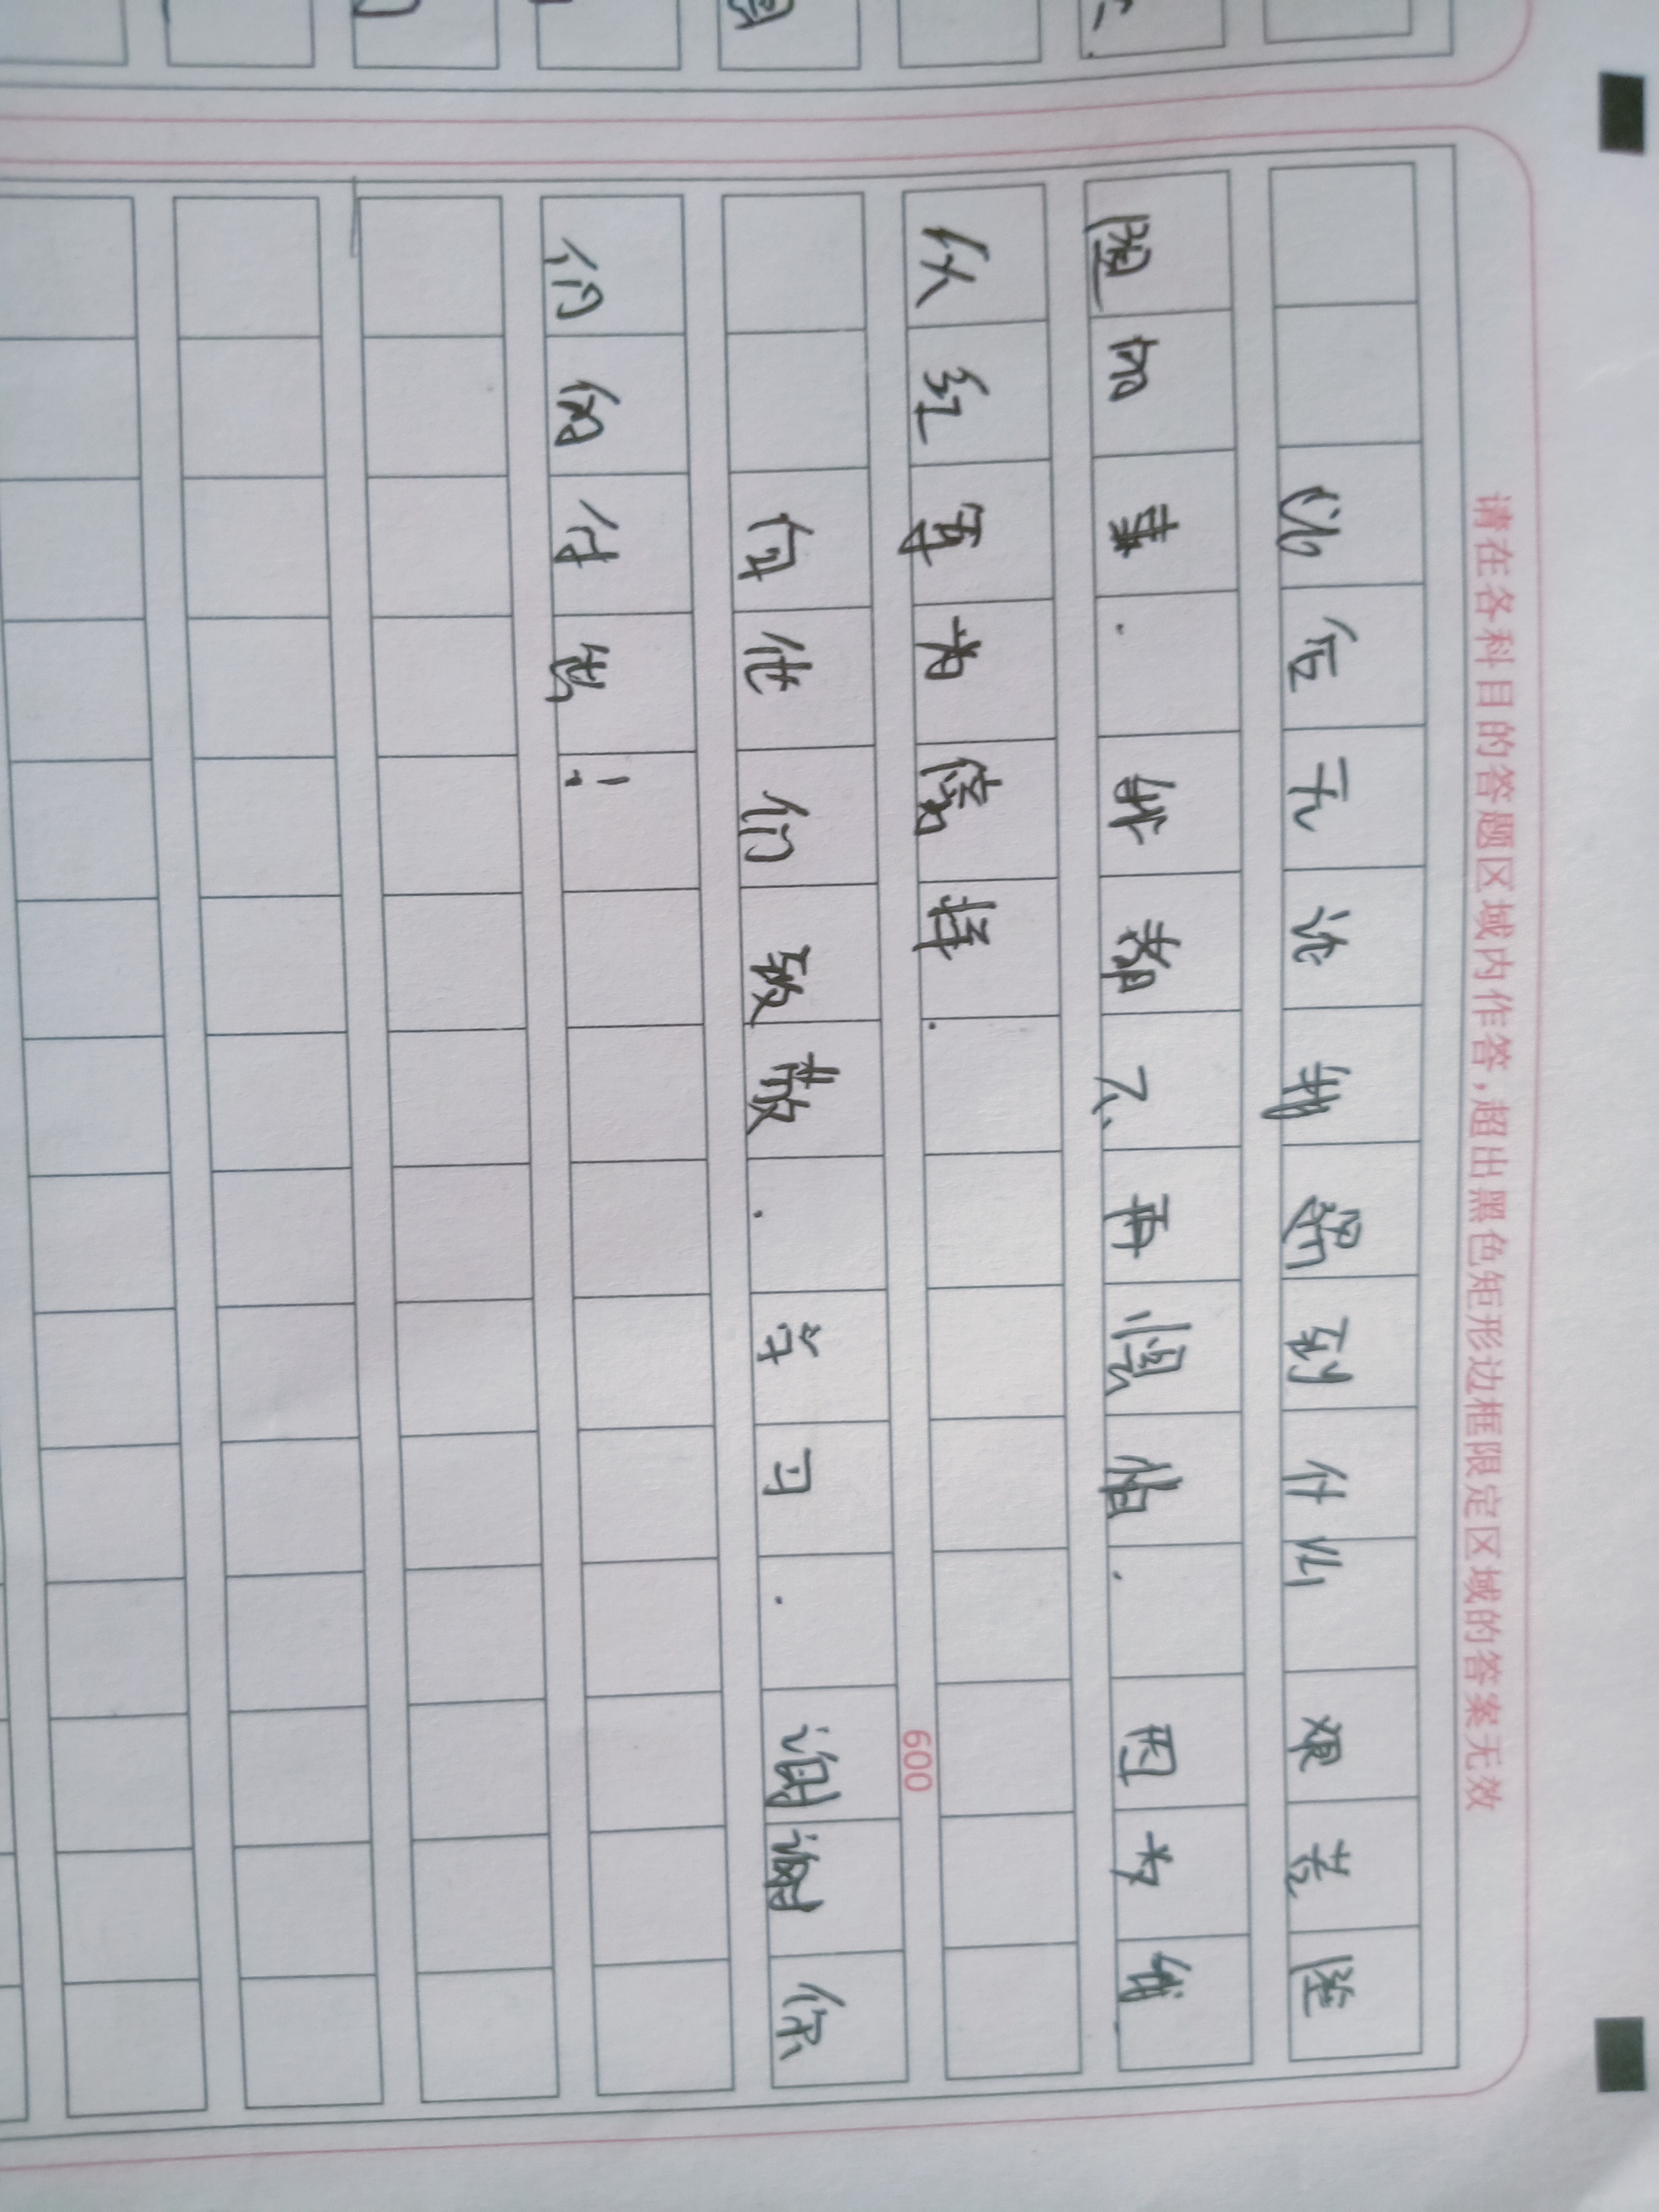 请在各科目的答题区域内作答,超出黑色矩形边框限定区域的答案无效
以后无论我遇到什么艰苦险
阻如事.我都不再惧怕.因为我
以红军为榜样.
600
向他们致敬.学习.谢谢你
们的付出!